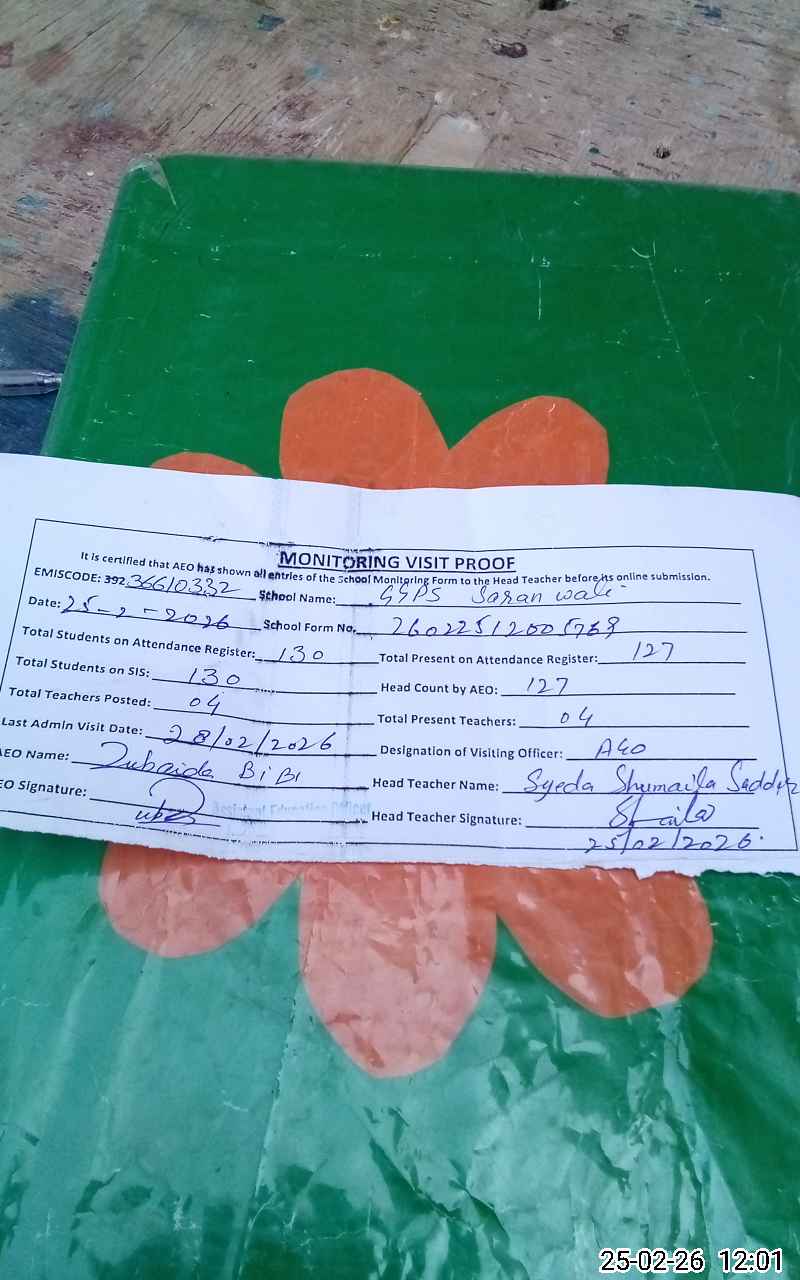 MONITORING VISIT PROOF
It is certified that AEO has shown all entries of the School Monitoring Form to the Head Teacher before its online submission.
EMISCODE: 392 36610332 School Name: GGPS Saran wali
Date: 25-2-2026 School Form No. 26022512005769
Total Students on Attendance Register: 130 Total Present on Attendance Register: 127
Total Students on SIS: 130 Head Count by AEO: 127
Total Teachers Posted: 04 Total Present Teachers: 04
Last Admin Visit Date: 28/02/2026 Designation of Visiting Officer: AEO
AEO Name: Zubaida BiBi Head Teacher Name: Syeda Shumaila Saddar
EO Signature: Assistant Education Officer Head Teacher Signature:
25/02/2026.
25-02-26 12:01